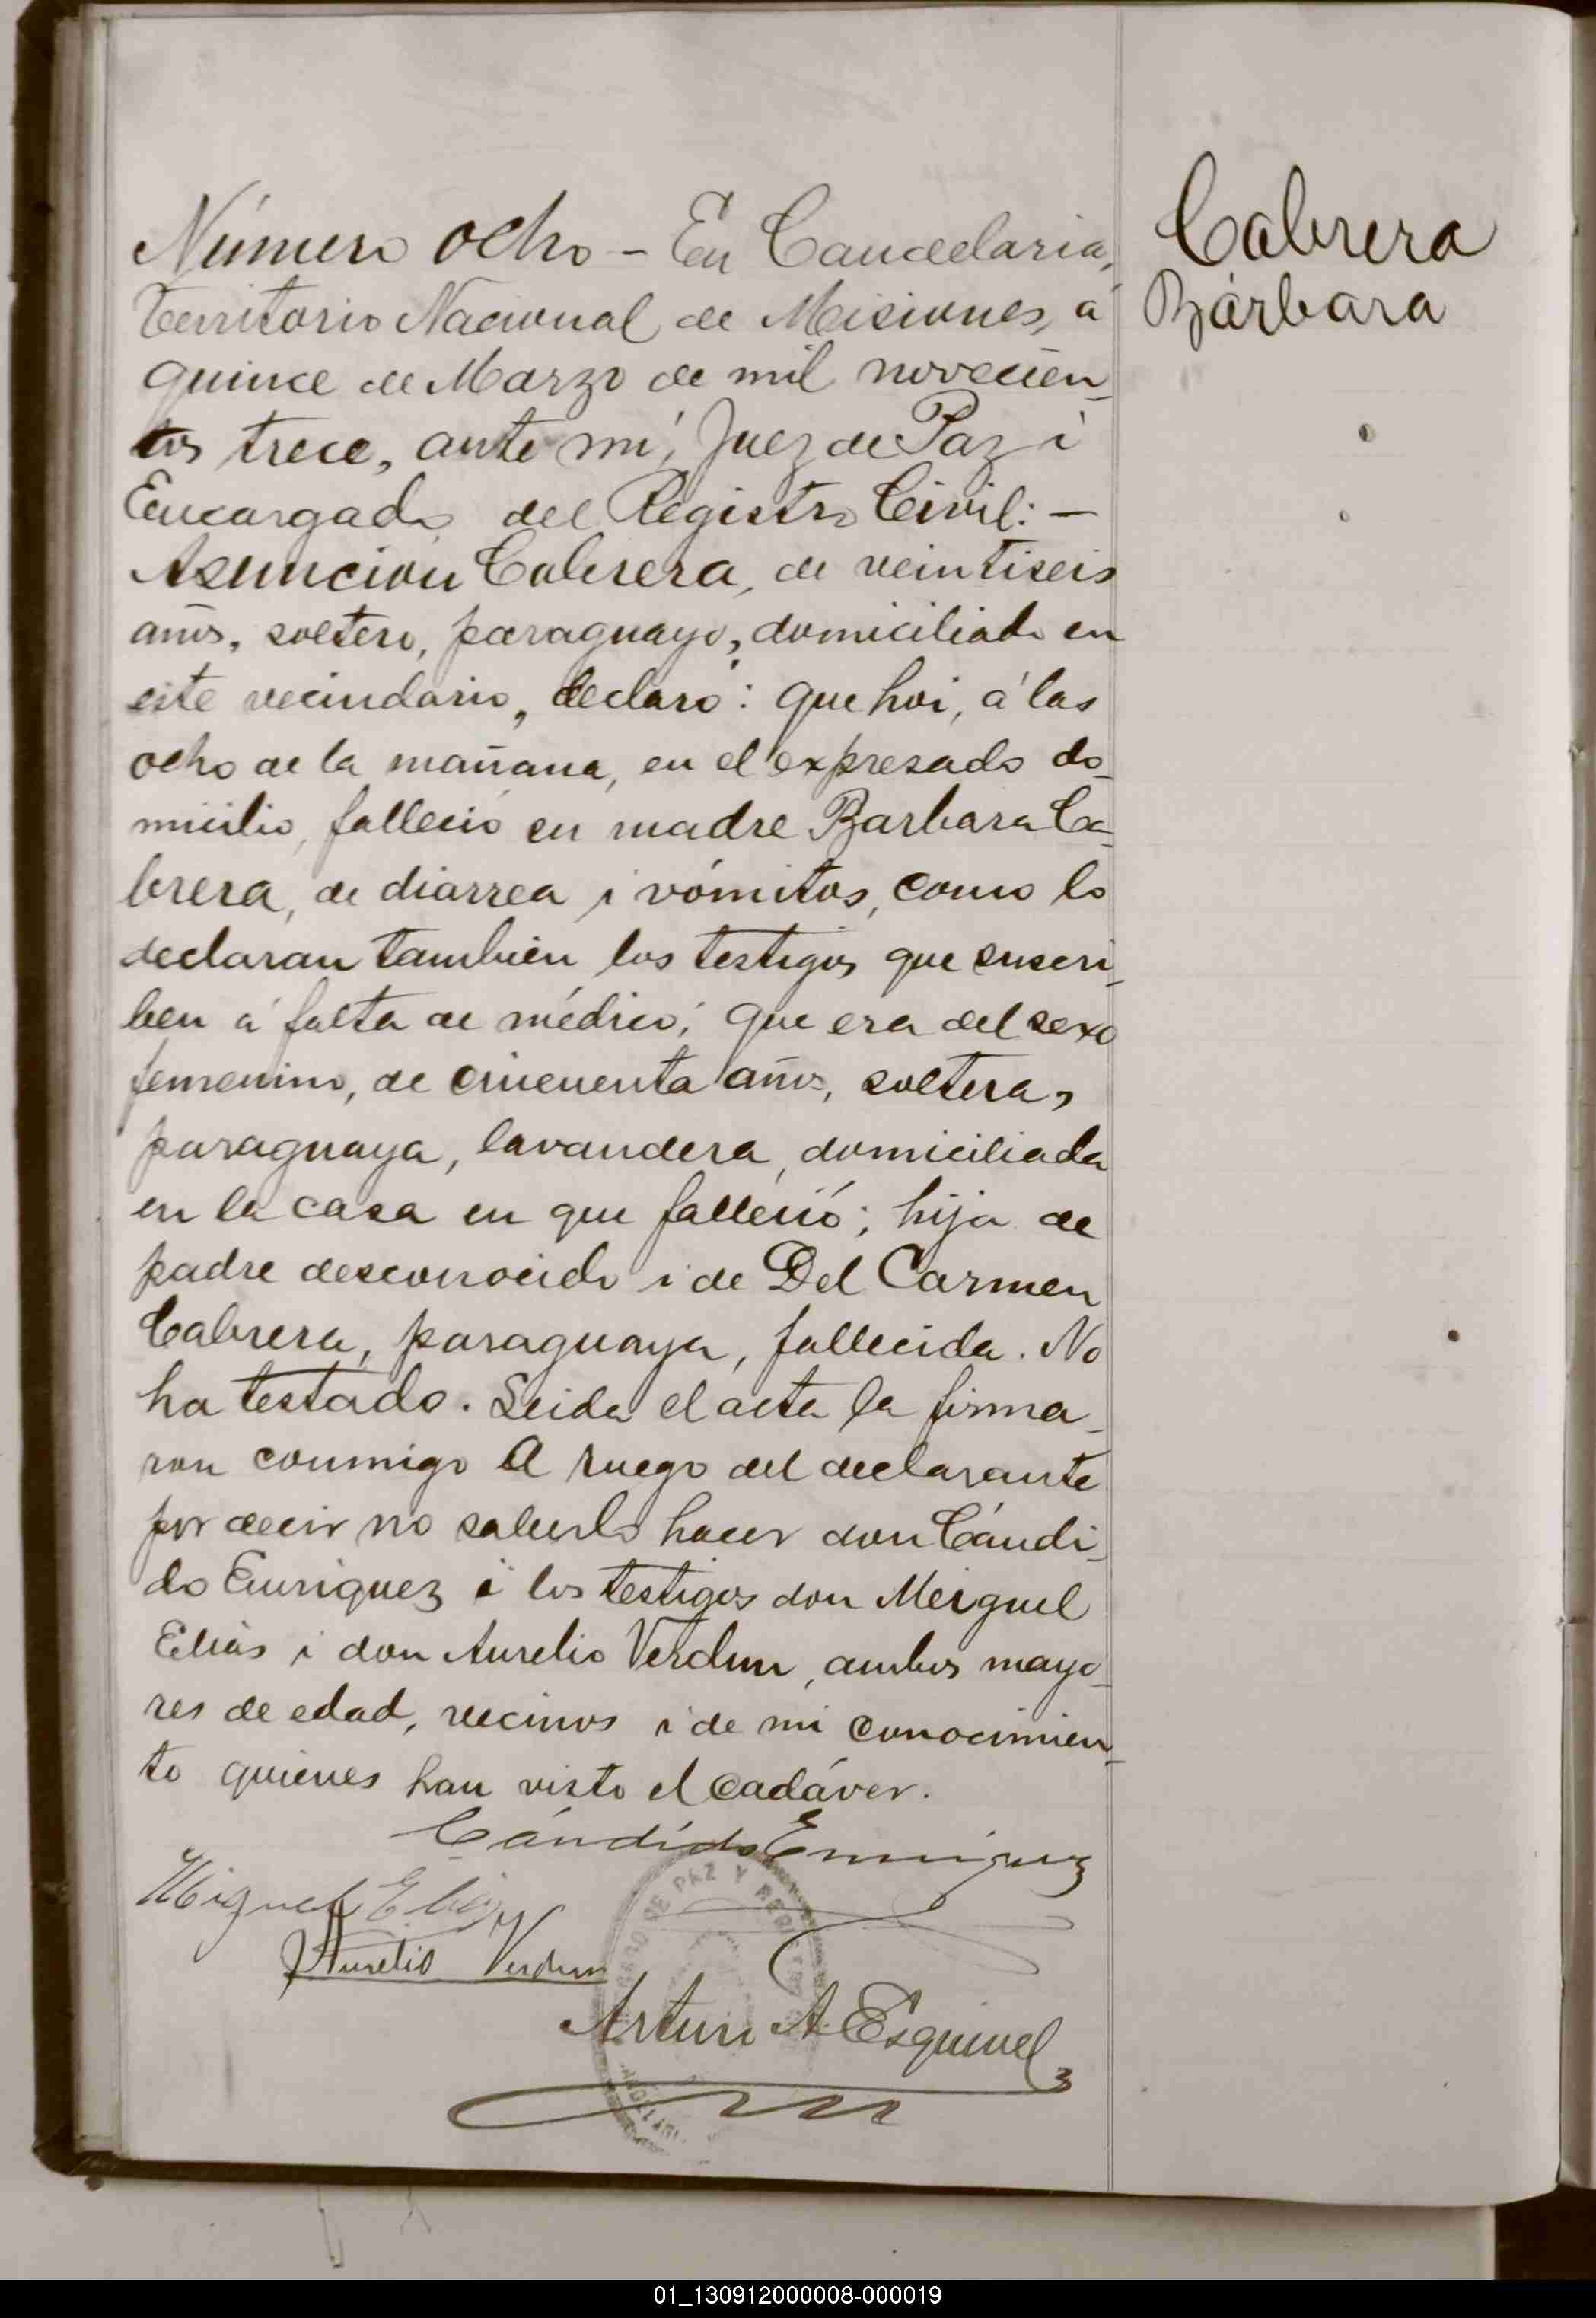 Número ocho – En Candelaria,
Territorio Nacional de Misiones, á
quince de Marzo de mil novecien-
tos trece, ante mí, Juez de Paz i
Encargado del Registro Civil: –
Asunción Cabrera, de veintiseis
años, soltero, paraguayo, domiciliado en
este vecindario, declaró: que hoi, á las
ocho de la mañana, en el expresado do-
micilio, falleció su madre Barbara Ca-
brera, de diarrea i vómitos, como lo
declaran también los testigos que suscri-
ben á falta de médico; que era del sexo
femenino, de cincuenta años, soltera,
paraguaya, lavandera, domiciliada
en la casa en que falleció; hija de
padre desconocido i de Del Carmen
Cabrera, paraguaya, fallecida. No
ha testado. Leida el acta la firma-
ron conmigo a ruego del declarante
por decir no saberlo hacer don Cándi-
do Enriquez i los testigos don Meiguel
Elias i don Aurelio Verdun, ambos mayo-
res de edad, vecinos i de mi conocimien-
to quienes han visto el cadáver.
Cándido Enriquez
Miguel Elias
Aurelio Verdun
DE PAZ Y REGISTRO
Arturo A. Esquivel
Cabrera
Bárbara
01_130912000008-000019